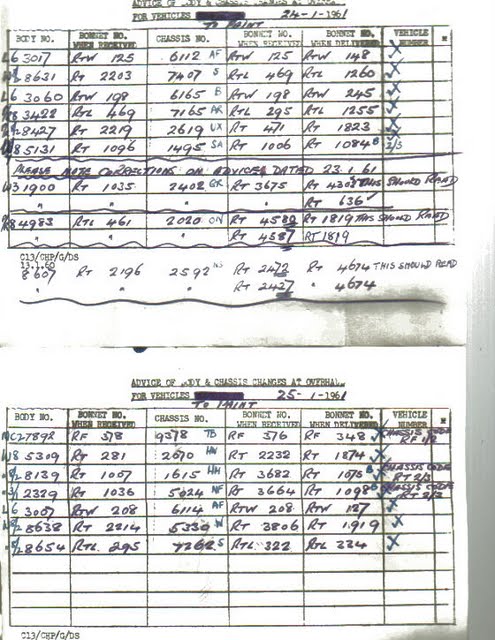 ADVICE OF BODY & CHASSIS CHANGES AT
FOR VEHICLES 24-1-1961
TO PAINT
BODY NO. BONNET NO. WHEN RECEIVED CHASSIS NO. BONNET NO. WHEN RECEIVED BONNET NO. WHEN DELIVERED VEHICLE NUMBER
L6 3017 RTW 125 6112 AF RTW 125 RTW 148 X
8631 RT 2203 7407 S RTL 469 RTL 1260 X
L6 3060 RTW 198 6165 B RTW 198 RTW 245 X
3422 RTL 469 7165 AR RTL 295 RTL 1255 X
8427 RT 2219 2619 UX RT 471 RT 1823 X
85131 RT 1096 1495 SA RT 1006 RT 1084 B 2/3
PLEASE NOTE CORRECTIONS ON ADVICE DATED 23.1.61
1900 RT 1035 2402 GK RT 3675 THIS SHOULD READ
" " " RT 636
84983 RTL 461 2020 ON RT 4580 RT 1819 THIS SHOULD READ
" " " RT 4587 RT 1819
C13/CHP/G/DS
13.1.60
8607 RT 2196 2592 NS RT 2472 RT 4674 THIS SHOULD READ
" " " RT 2427 " 4674
ADVICE OF BODY & CHASSIS CHANGES AT OVERHAUL
FOR VEHICLES 25-1-1961
TO PAINT
BODY NO. BONNET NO. WHEN RECEIVED CHASSIS NO. BONNET NO. WHEN RECEIVED BONNET NO. WHEN DELIVERED VEHICLE NUMBER
C27892 RF 378 9378 TB RF 376 RF 348 CHASSIS CODE RF 1/2
W8 5309 RT 281 2670 HW RT 2232 RT 1874 X
8139 RT 1007 1615 HH RT 3682 RT 1075 B CHASSIS CODE RT 2/3
2329 RT 1036 5024 NF RT 3664 RT 1098 CHASSIS CODE RT 2/3
L6 3007 RTW 208 6114 AF RTW 208 RTW 127 X
8638 RT 2214 5339 W RT 3806 RT 1919 X
8654 RTL 295 7262 S RTL 322 RTL 224 X
C13/CHP/G/DS